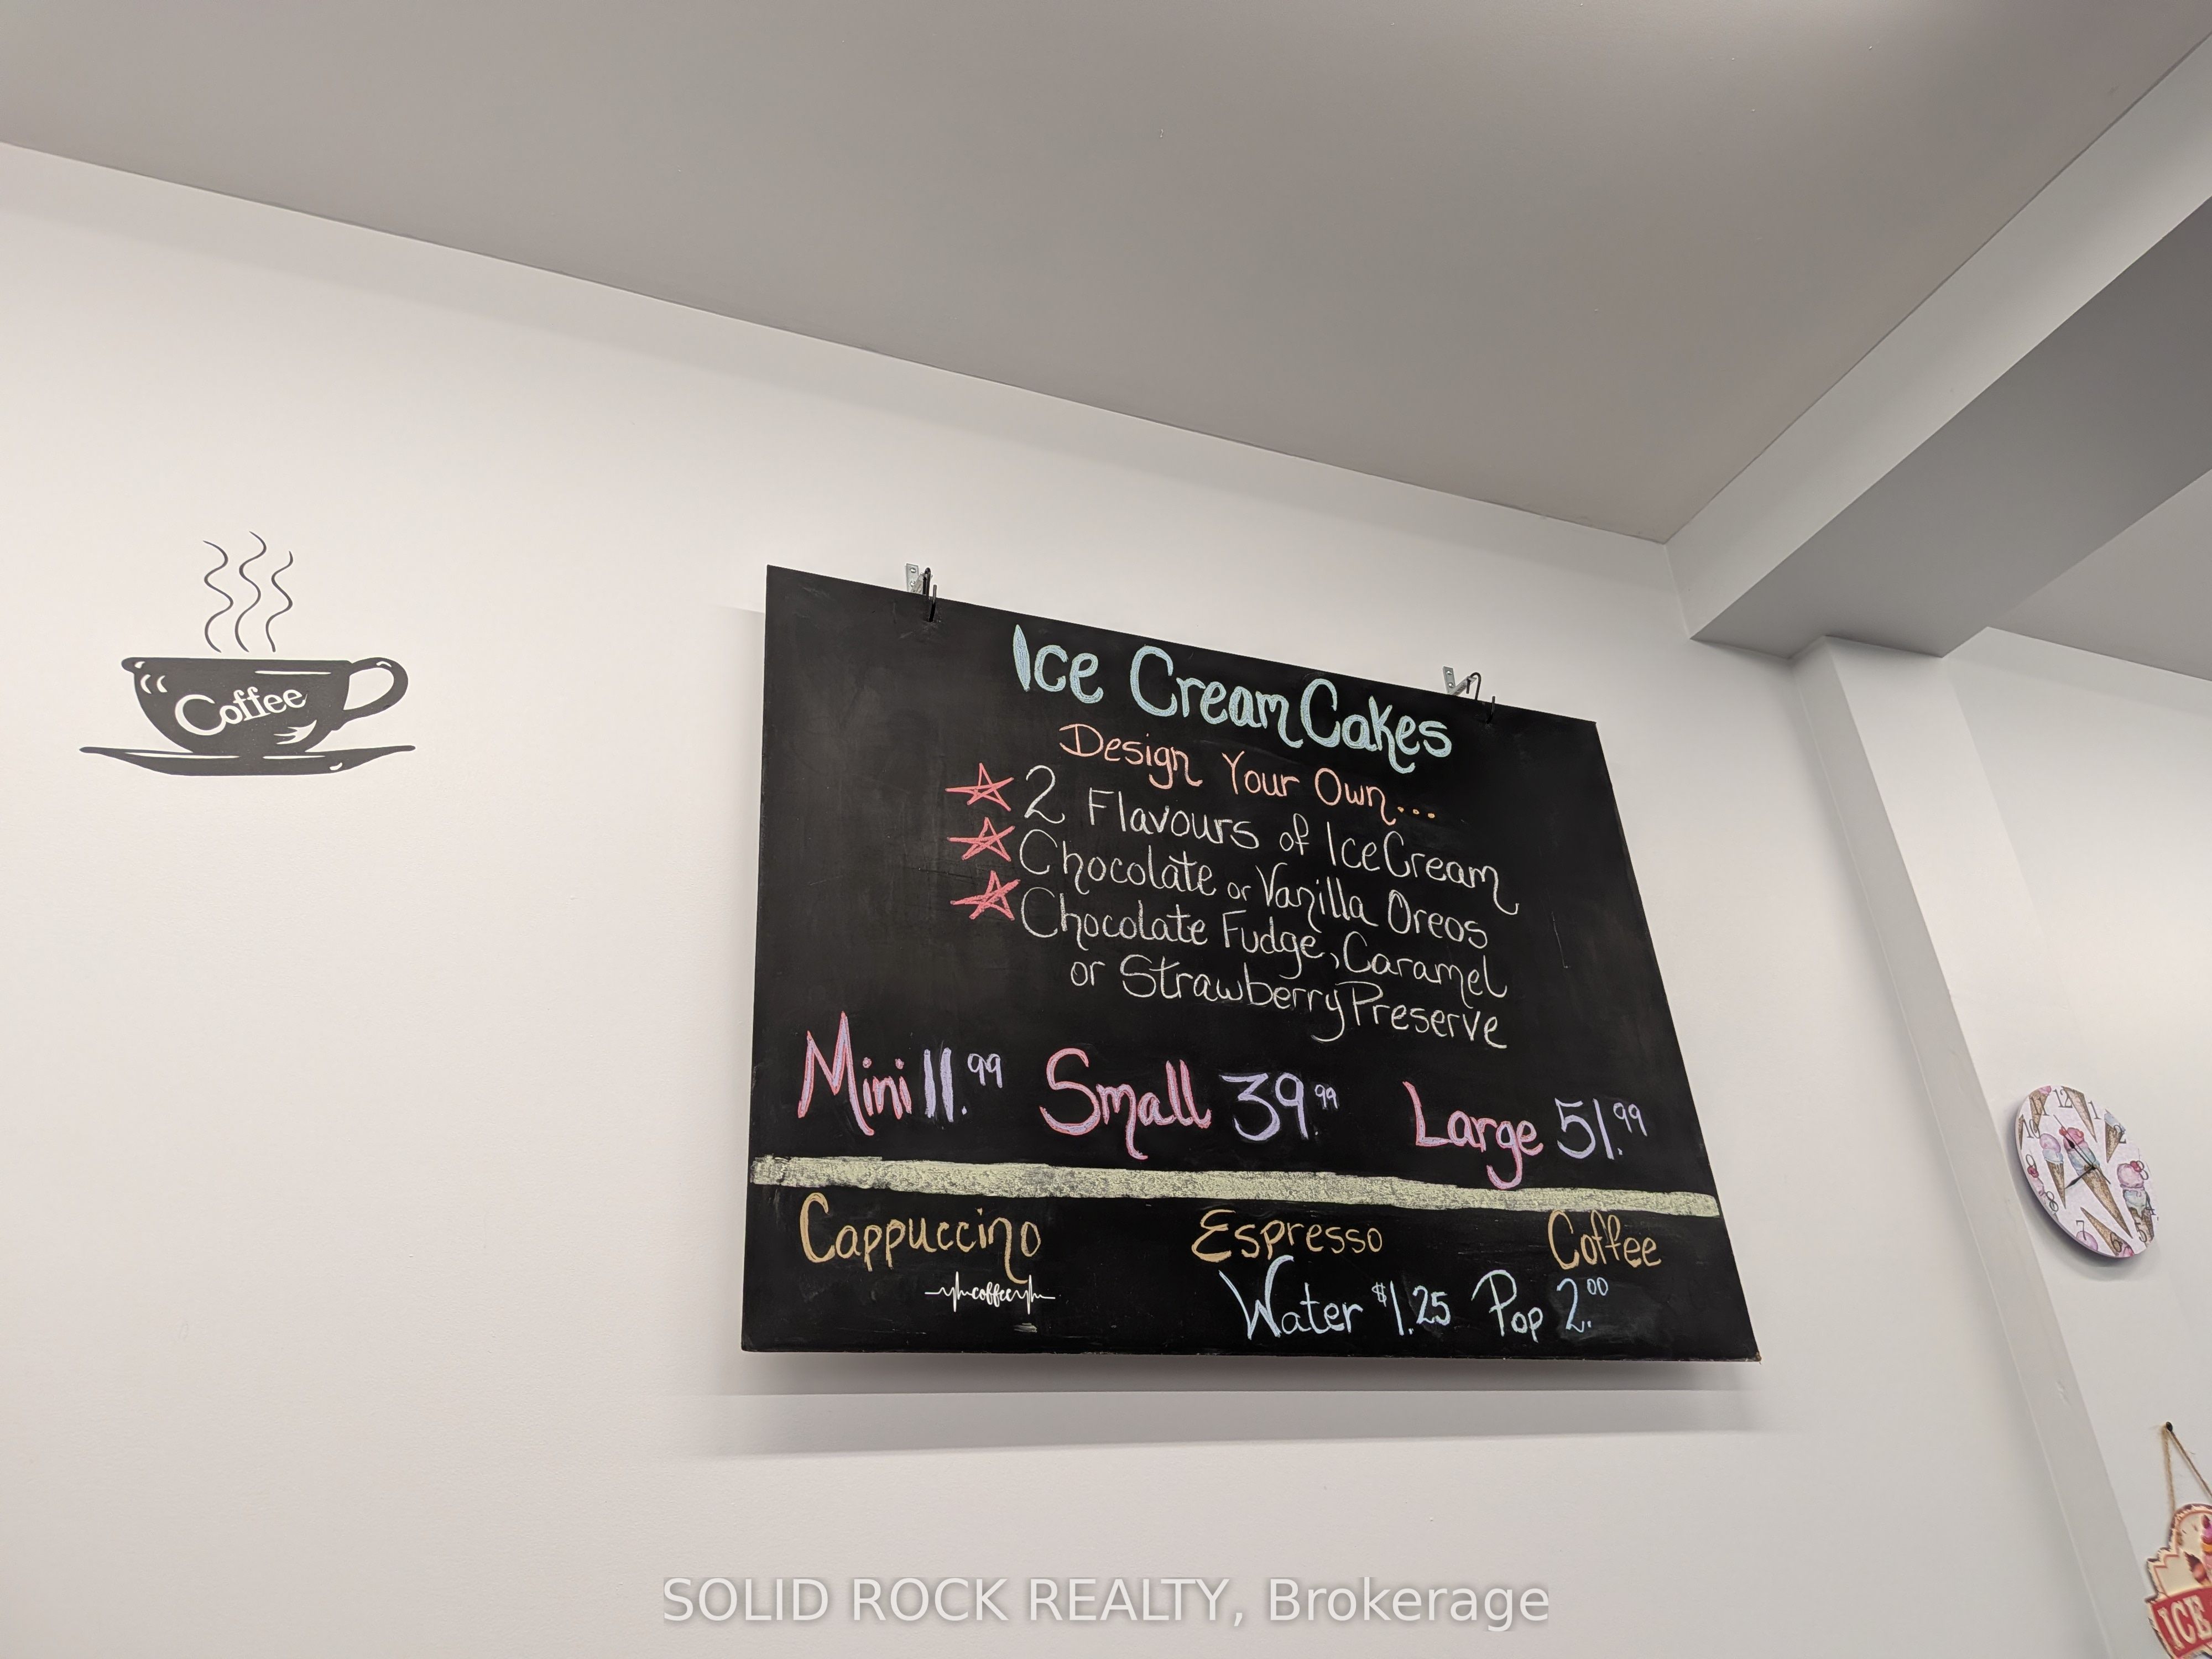 Coffee
Ice Cream Cakes
Design Your Own...
2 Flavours of Ice Cream
Chocolate or Vanilla Oreos
Chocolate Fudge, Caramel
or Strawberry Preserve
Mini 11.99 Small 39.99 Large 51.99
Cappuccino Espresso Coffee
coffee
Water $1.25 Pop 2.00
ICE
SOLID ROCK REALTY, Brokerage